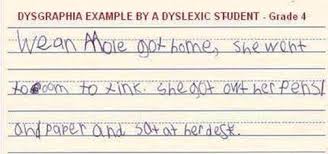 DYSGRAPHIA EXAMPLE BY A DYSLEXIC STUDENT - Grade 4
Wean Mole got home, she went
to oom to xink. she got out her pens/
and paper and sat at her desk.